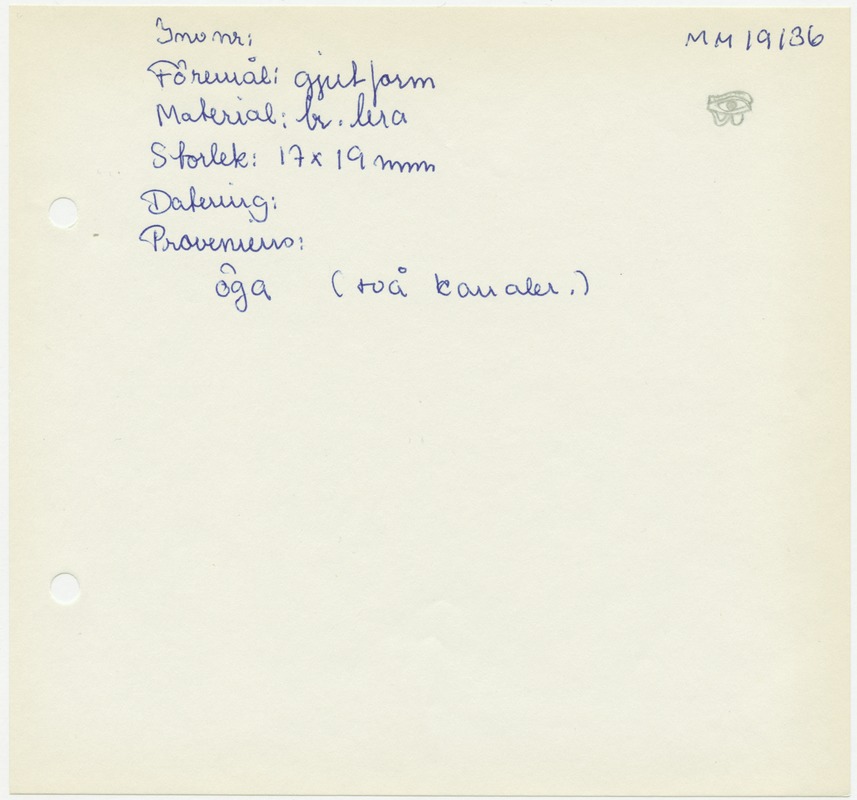 Inv nr:
MM 19136
Föremål: gjutform
Material: br. lera
Storlek: 17 x 19 mm
Datering:
Proveniens:
öga (två kanaler.)